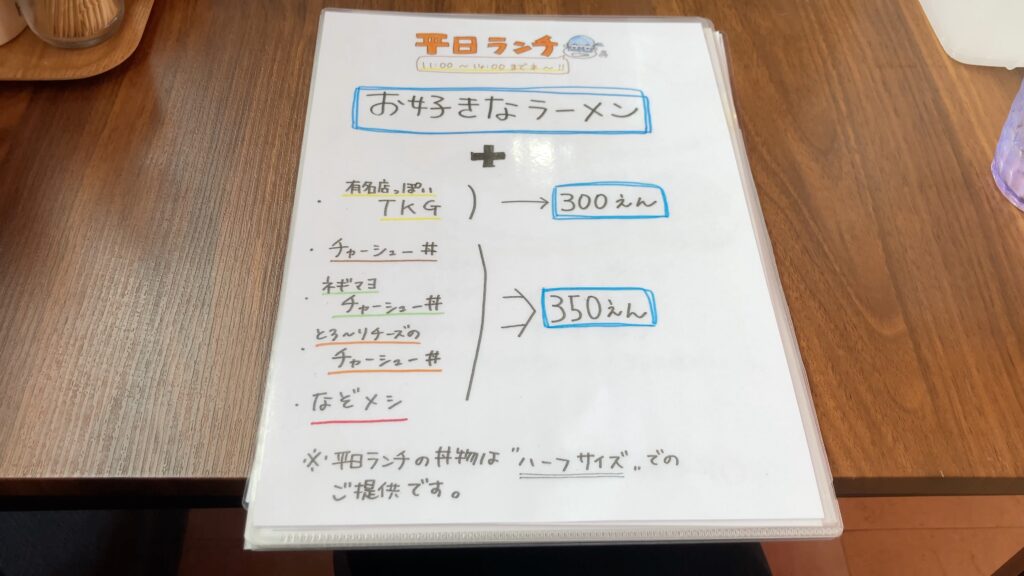 平日ランチ
11:00〜14:00までネ〜!!
お好きなラーメン
+
・有名店っぽい
TKG → 300えん
・チャーシュー丼
・ネギマヨ
チャーシュー丼
350えん
とろ〜りチーズの
・チャーシュー丼
・なぞメシ
※平日ランチの丼物は"ハーフサイズ"での
ご提供です。